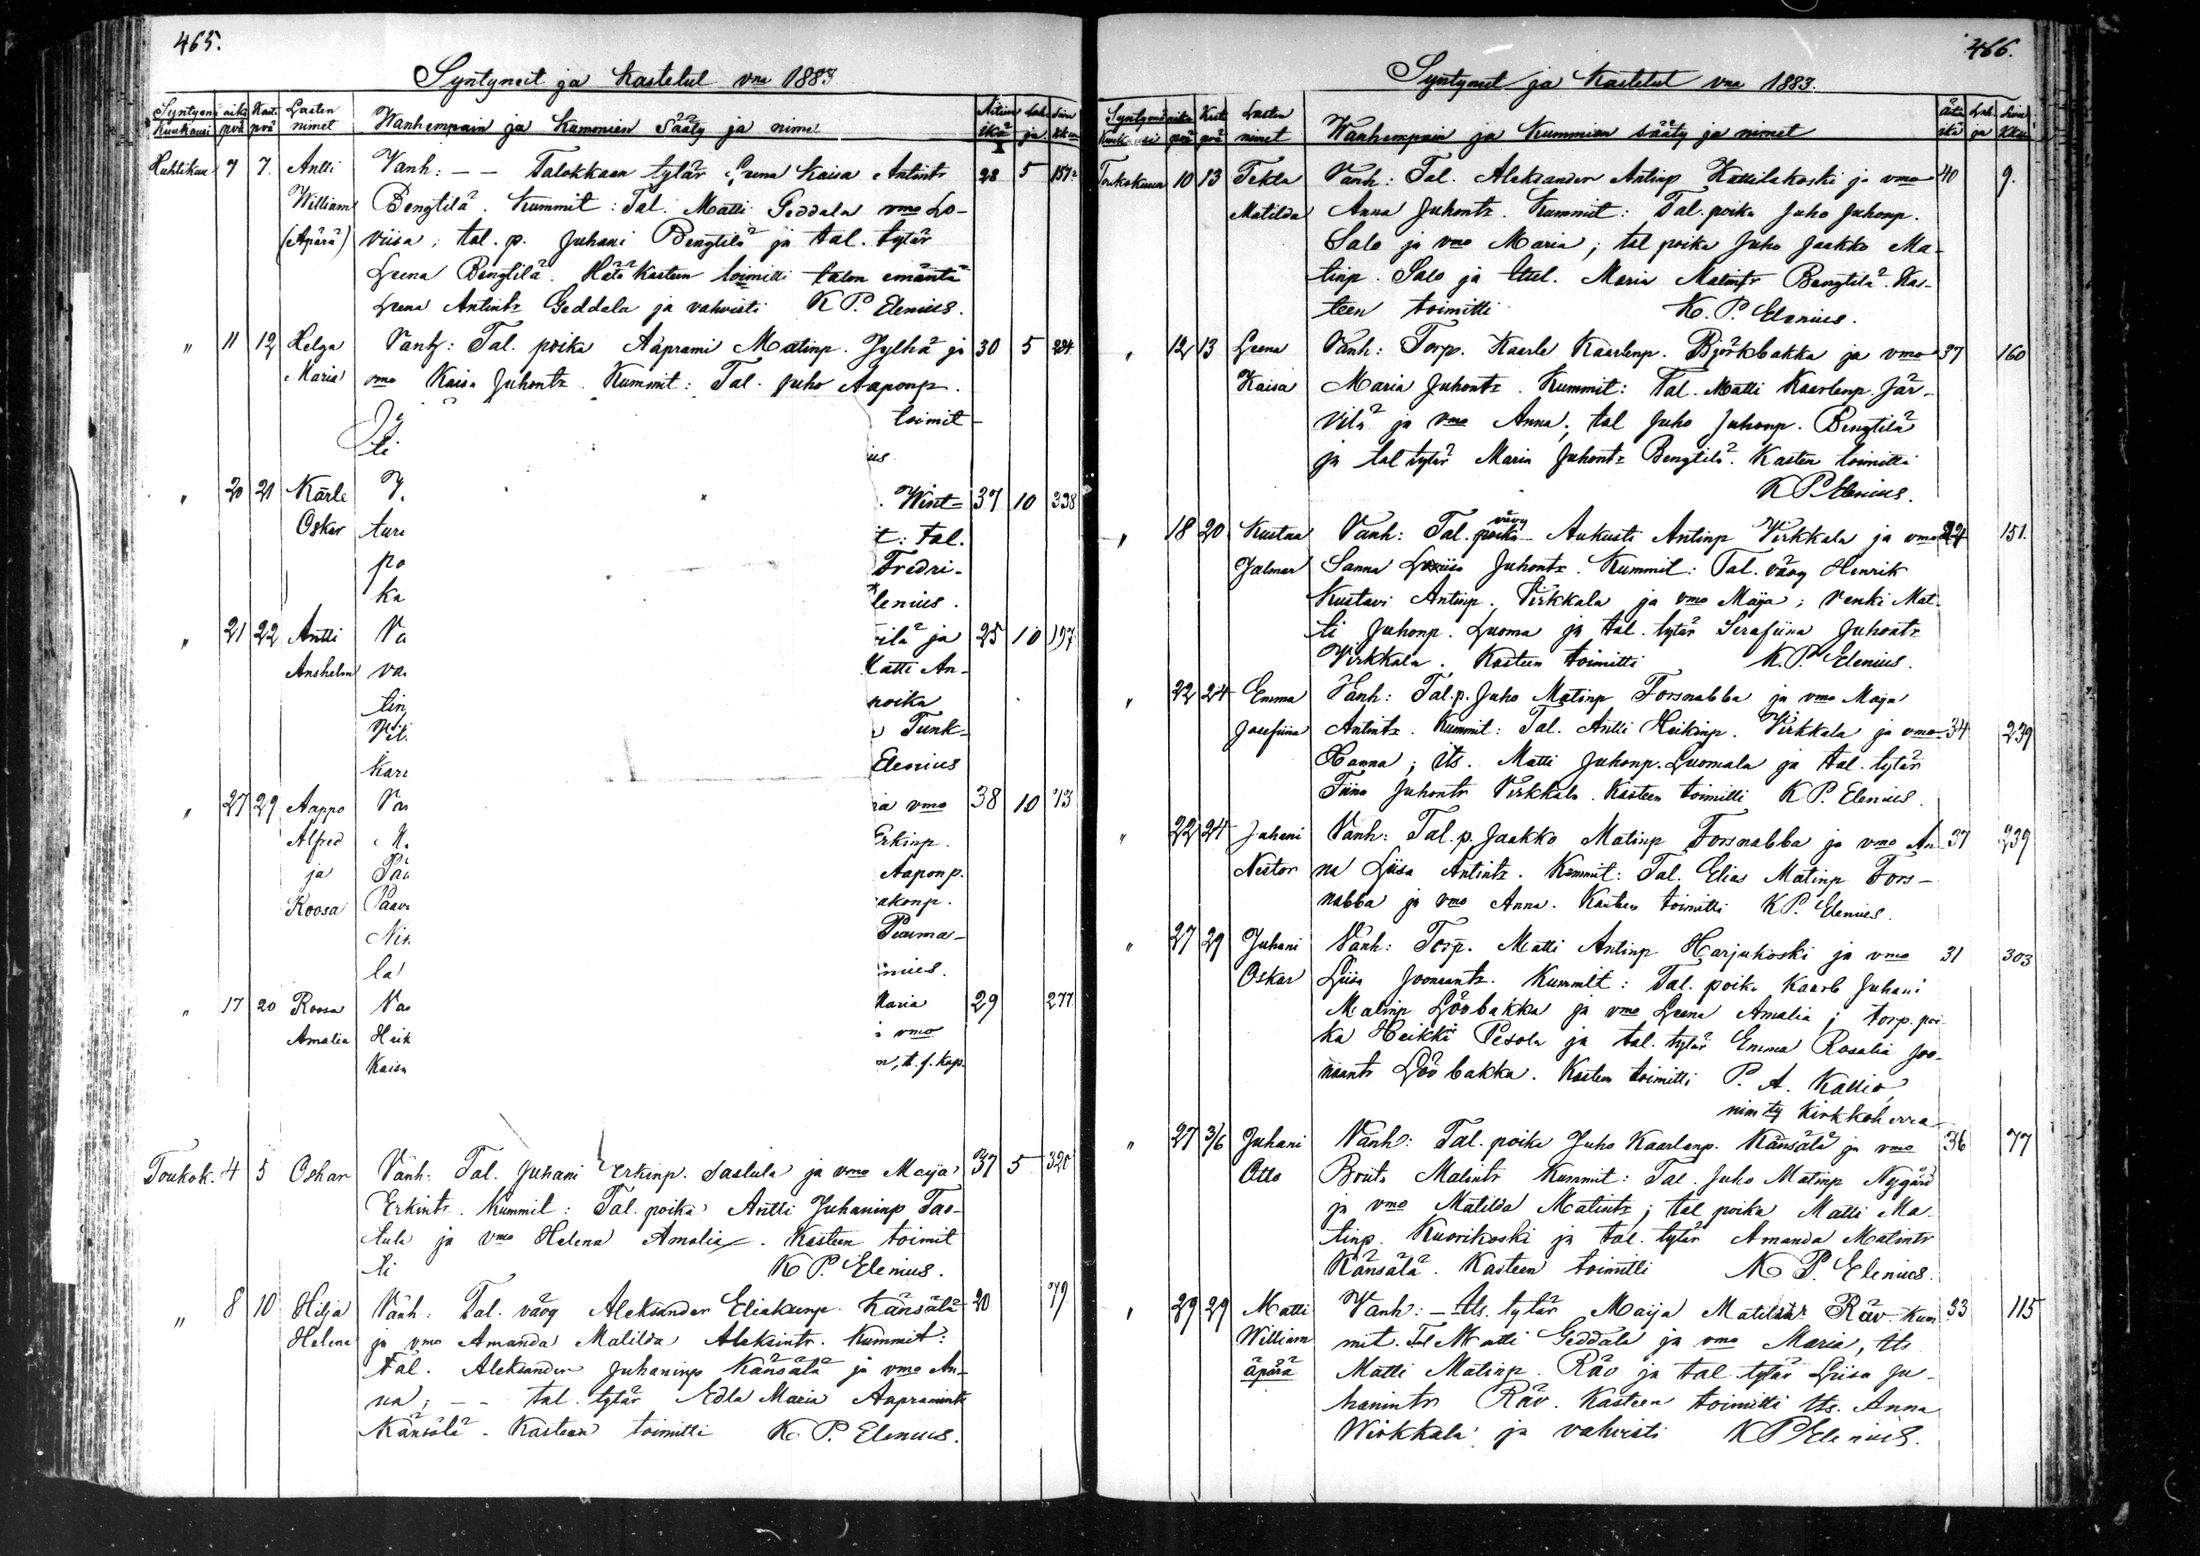 465.
Syntyneit ja Kastetut vna 1883
Syntymä aika Kast. Lasten Äitien Lah- Sivu
Kuukausi pvä pvä nimet Wanhempain ja Kummien Sääty ja nime ikä ja
Huhtikuu 7 7. Antti Vanh: – – Talokkaan tytär Leena Kaisa Antintr 28 5
William Bengtilä. Kummit: Tal. Matti Geddala vmo Lo-
(Äpärä) viisa; tal. p. Juhani Bengtilä ja tal. tytär
Leena Bengtilä. Hätä Kasteen toimitti talon emäntä
Leena Antintr Geddala ja vahvisti K P. Elenius.
" 11 12 Helga Vanh: Tal. poika Aaprami Matinp. Jylhä ja 30 5 224
Maria vmo Kaisa Juhontr. Kummit: Tal. Juho Aaponp.
toimit-
ti
" 20 21 Kärle V. Wint= 37 10 338
Oskar turi t: tal.
po Fredri-
ka lenius.
" 21 22 Antti Va ilä ja 25 10 197
Anshelm va Matti An-
tin poika
Tunk-
Kari Elenius
" 27 29 Aappo Va ja vmo 38 10 73
Alfred Erkinp.
ja Aaponp.
Roosa Paav akonp.
Nii Peuma-
la nius.
" 17 20 Roosa Va Maria 29 277
Amalia Heik vmo
Kaisa n, t. f. Kap.
Toukok. 4 5 Oskar Vanh: Tal. Juhani Erkinp. Sastula ja vmo Maija 37 5 320
Erkintr. Kummit: Tal. poika Antti Juhaninp Tas-
tula ja vmo Helena Amalia. Kasteen toimit
ti K P. Elenius.
" 8 10 Hilja Vanh: Tal. vävy Aleksander Eliakunp. Känsälä 20 79
Helena ja vmo Amanda Matilda Aleksintr. Kummit:
Tal. Aleksander Juhaninp Känsälä ja vmo An-
na; – – tal. tytär Edla Maria Aapramintr
Känsälä. Kasteen toimitti K P. Elenius.
466.
Syntyneet ja Kastetut vna 1883.
Syntymä aika Kast. Lasten Äitin Lah- Sivu
Kuukausi pvä pvä nimet Wanhempain ja Kummian sääty ja nimet ikä ja
Toukokuun 10 13 Tekla Vanh: Tal. Aleksander Antinp Kattilakoski ja vmo 40 9.
Matilda Anna Juhontr. Kummit: Tal. poika Juho Juhonp.
Salo ja vmo Maria; tal poika Juho Jaakko Ma-
tinp. Salo ja Maria Matintr Bengtilä. Kas-
teen toimitti K. P. Elenius.
" 12 13 Leena Vanh: Torp. Kaarle Kaarlenp. Björkbakka ja vmo 37 160
Kaisa Maria Juhontr. Kummit: Tal. Matti Kaarlenp. Jär-
vilä ja vmo Anna; tal Juho Juhonp. Bengtilä
ja tal tytär Maria Juhontr Bengtilä. Kasten toimitti
K P Elenius.
" 18 20 Kustaa Vanh: Tal. poika vävy Aukusti Antinp Virkkala ja vmo 24 151.
Jalmar Sanna Loviisa Juhontr. Kummit: Tal. vävy Henrik
Kustavi Antinp. Virkkala ja vmo Maija; renki Mat-
ti Juhonp. Luoma ja tal. tytär Serafiina Juhontr
Virkkala. Kasteen toimitti K. P. Elenius.
" 22 24 Emma Vanh: Tal. p. Juho Matinp Forsnabba ja vmo Maja
Josefiina Antintr. Kummit: Tal. Antti Heikinp. Virkkala ja vmo 34 239
Hanna; its. Matti Juhonp. Luomala ja tal. tytär
Tiina Juhontr Virkkala. Kasteen toimitti K P. Elenius.
" 22 24 Juhani Vanh: Tal. p. Jaakko Matinp Forsnabba ja vmo An- 37 239
Nestor na Liisa Antintr. Kummit: Tal. Elias Matinp Fors-
nabba ja vmo Anna. Kasteen toimitti K P. Elenius.
" 27 29 Juhani Vanh: Torp. Matti Antinp Harjukoski ja vmo 31 303
Oskar Liisa Joonantr. Kummit: Tal. poika Kaarlo Juhani
Matinp Lövbakka ja vmo Leena Amalia; torp. poi-
ka Heikki Pesola ja tal. tytär Emma Rosalia Joo-
nantr Lövbakka. Kasteen toimitti P. A. Kallio,
nim ty Kirkkoherra
" 27 3/6 Juhani Vanh: Tal. poika Juho Kaarlenp. Känsälä ja vmo 36 77
Otto Brita Matintr Kummit: Tal. Juho Matinp Nygård
ja vmo Matilda Matintr; tal poika Matti Ma-
tinp. Kuorikoski ja tal. tytär Amanda Matintr
Känsälä. Kasteen toimitti K P. Elenius.
" 29 29 Matti Vanh: – tls. tytär Maija Matilda Räv. Kum 33 115
William mit. Tal Matti Geddala ja vmo Maria, tls
äpärä Matti Matinp. Räv ja tal tytär Liisa Ju-
hanintr Räv. Kasteen toimitti tls. Anna
Wirkkala ja vahvisti K P Elenius.